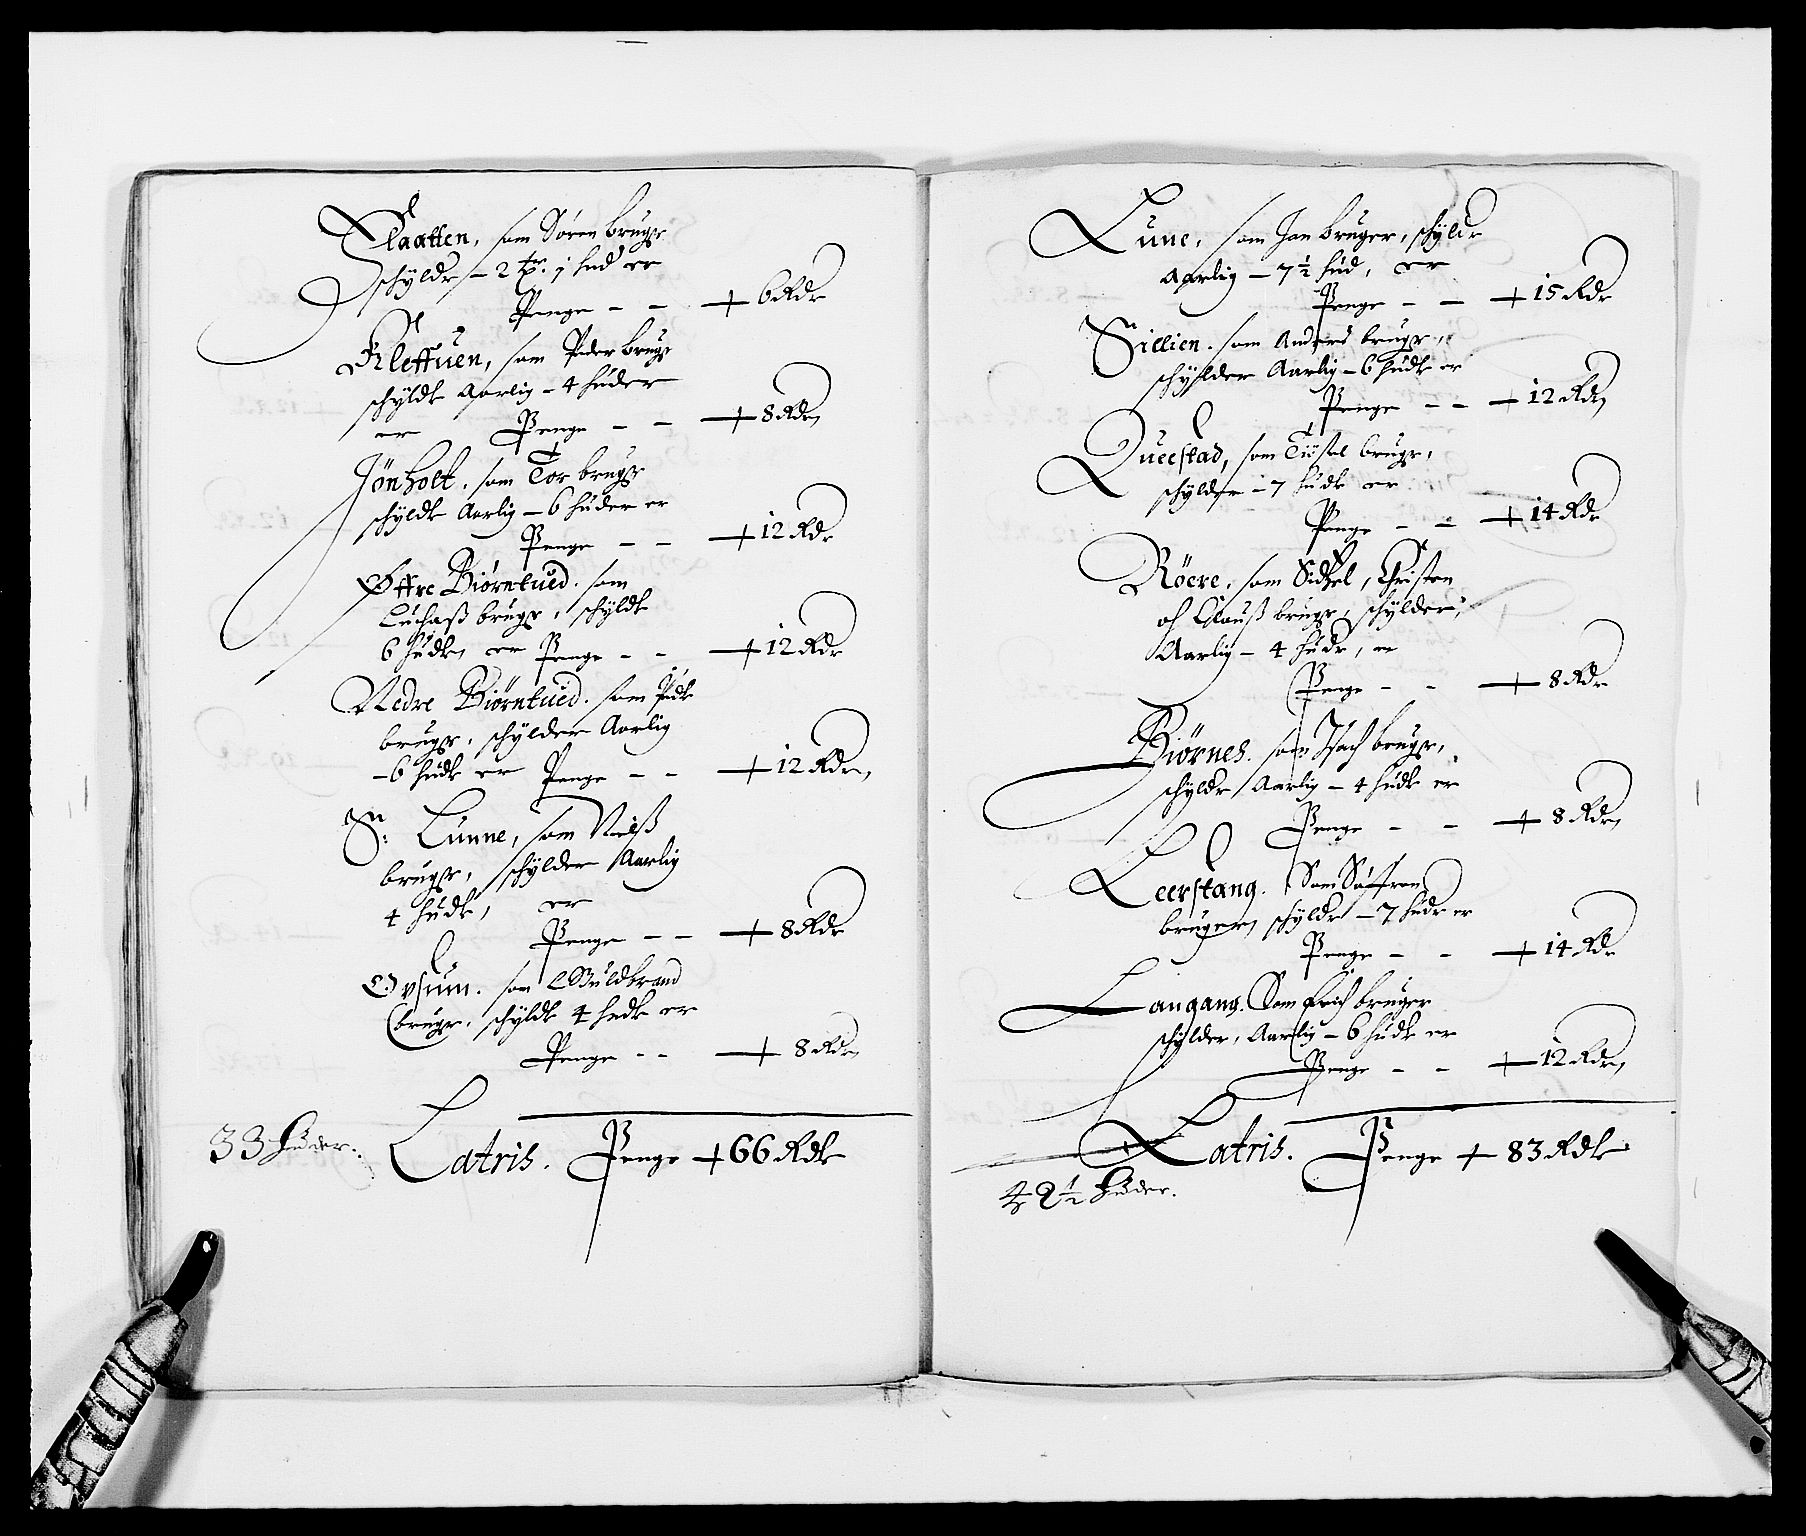 Slaatten, som Sören brugr
schyldr — 2 tr. j hud er
Penge — — + 6 Rdr
Kleffuen, som Peder brugr
schyldr Aarlig — 4 huder
er Penge — — + 8 Rdr
Jönholt. som Tor brugr
schyldr Aarlig — 6 huder er
Penge — — + 12 Rdr
Øffre Biörntued. som
Luchaß brugr, schyldr
6 hudr er Penge — — + 12 Rdr
Nedre Biörntued. som Pedr
brugr, schylder Aarlig
— 6 hudr er Penge — — + 12 Rdr
Sr: Lunne, som Nielß
brugr, schylder Aarlig
4 hudr, er
Penge — — + 8 Rdr
Ovsum. som Guldbrand
brugr, schyldr 4 hudr er
Penge — — + 8 Rdr
33 huder. Latris. Penge + 66 Rdr
Lune, som Jan bruger, schyldr
Aarlig — 7 1/2 hud, er
Penge — — + 15 Rdr
Sillien. som Anders brugr,
schylder Aarlig — 6 hudr er
Penge — — + 12 Rdr
Queestad, som brugr,
schylder — 7 hudr er
Penge — — + 14 Rdr
Röere, som Sidsel, Christen
oh Clauß brugr, schylder,
Aarlig — 4 hudr, er
Penge — — + 8 Rdr
Biörnes. som Isach brugr,
schyldr Aarlig — 4 hudr er
Penge — — + 8 Rdr
Leerstang. Som Söffren
bruger, schyldr — 7 hudr er
Penge — — + 14 Rdr
Langang. Som Erich bruger
schylder, Aarlig — 6 hudr er
Penge — — + 12 Rdr
Latris. Penge + 83 Rdr
42 1/2 huder.